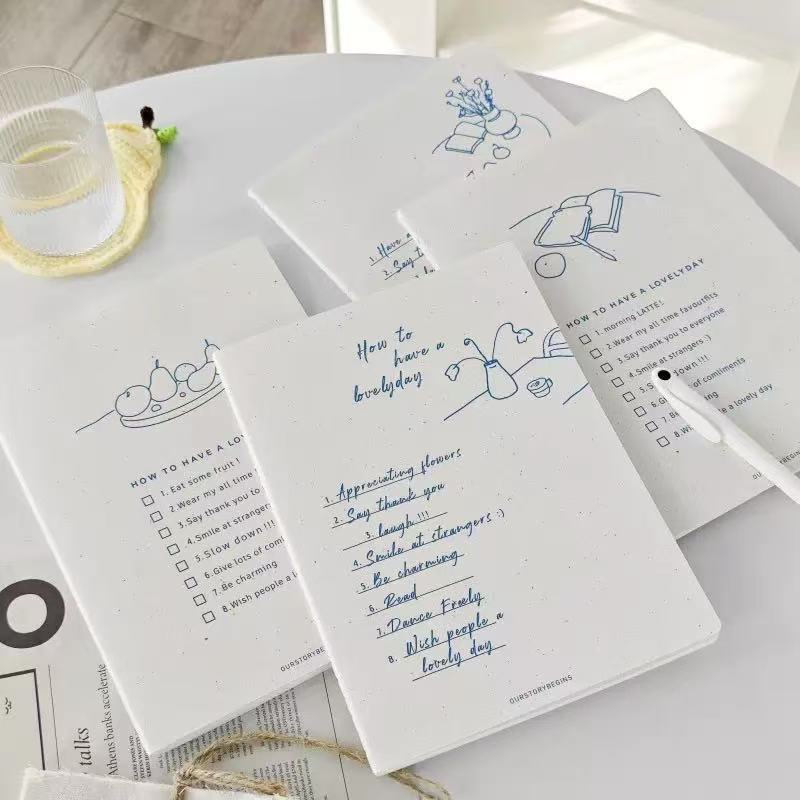 1. Have a
2. Say t
HOW TO HAVE A LOVELYDAY
1. morning LATTE!
2.Wear my all time favoutfits
3.Say thank you to everyone
4.Smile at strangers :)
5.S down !!!
6.G of comliments
7.Be
8.Wis e a lovely day
OURSTORYBEGINS
HOW TO HAVE A LOV
1. Eat some fruit !
2.Wear my all time
3.Say thank you to
4.Smile at stranger
5.Slow down !!!
6.Give lots of comli
7.Be charming
8.Wish people a l
OURSTORYBE
How to
have a
lovelyday
1. Appreciating flowers
2. Say thank you
3. laugh !!!
4. Smile at strangers :)
5. Be charming
6. Read
7. Dance Freely
8. Wish people a
lovely day
OURSTORYBEGINS
talks
Athens banks accelerate